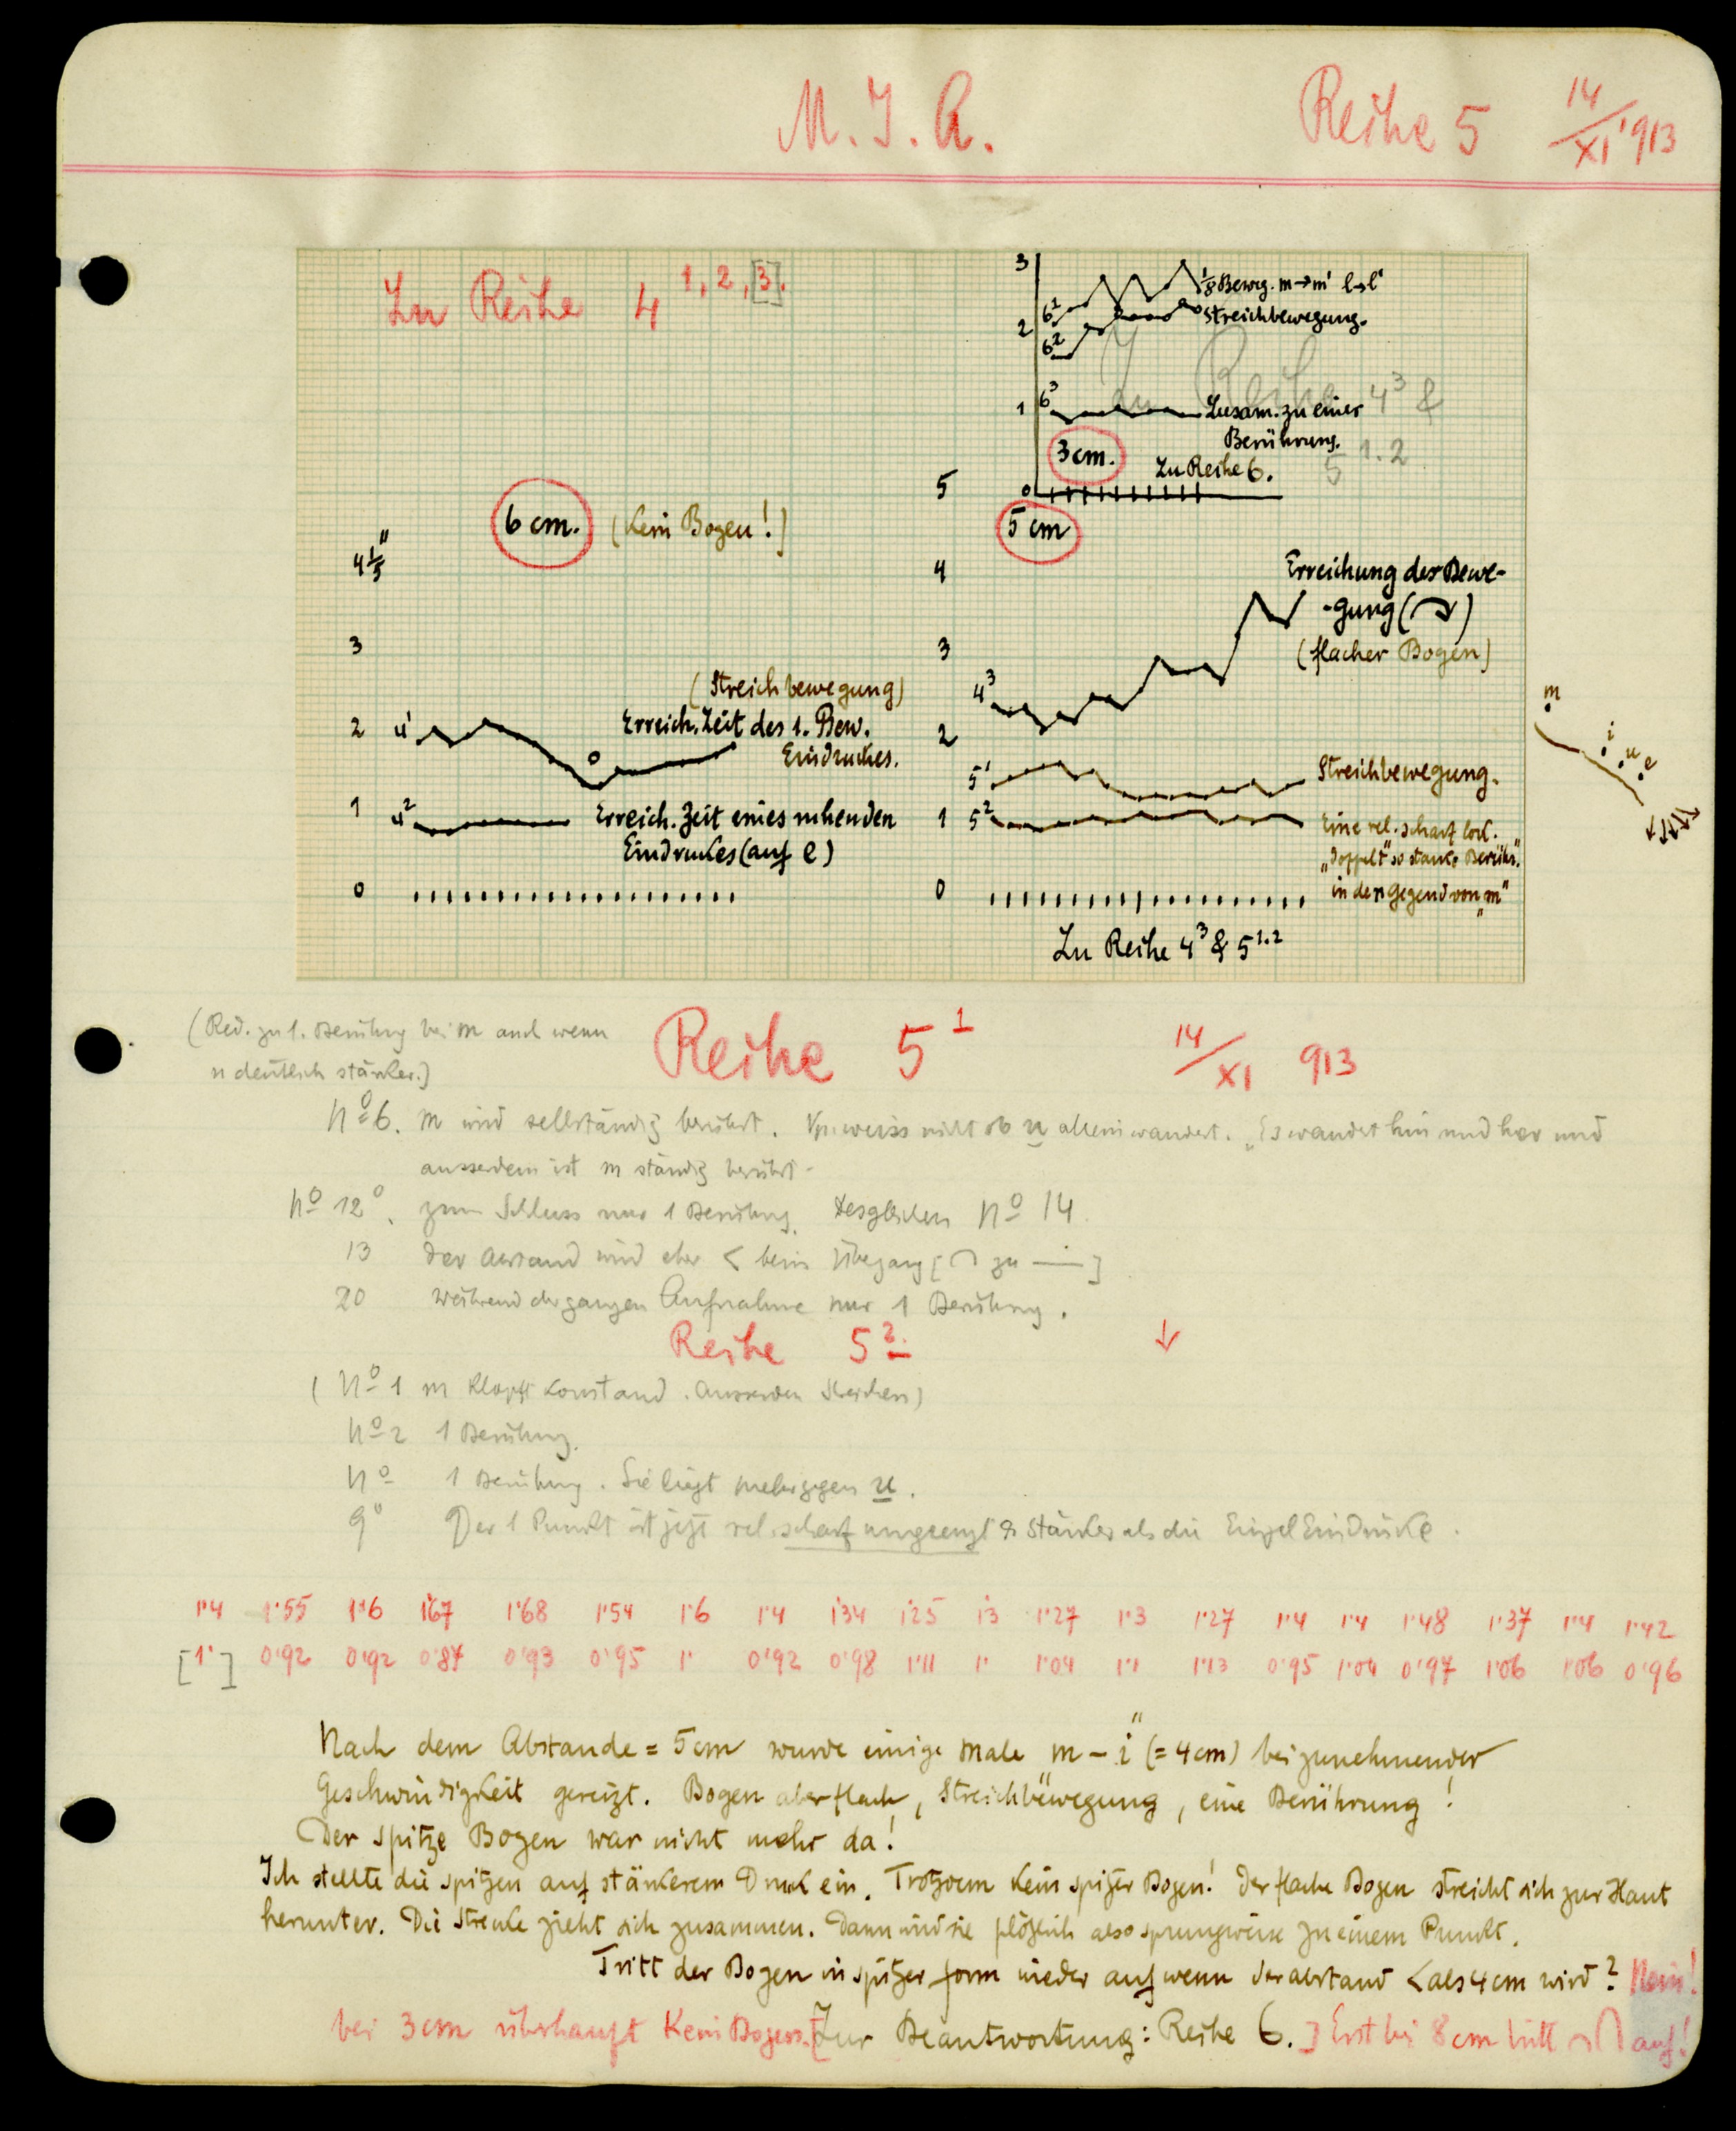 M. J. R. Reihe 5 14/XI 913
Zu Reihe 4 1, 2, [3].
3
6¹ 1/8 Beweg. m→m' l→l'
2 Streichbewegung.
6²
Zu Reihe 4³ &
5 1.2
1 6³ Zusam. zu einer
Berührung.
3 cm. Zu Reihe 6.
0
6 cm. (Kein Bogen!)
4 1/5"
3
(Streichbewegung)
2 4¹ Erreich. Zeit des 1. Bew.
Eindruckes.
1 4² Erreich. Zeit eines ruhenden
Eindruckes (auf e)
0
5
5 cm
4 Erreichung der Bewe-
-gung (⤵)
3 (flacher Bogen)
4³
2
5¹ Streichbewegung.
1 5² Eine rel. scharf lok.
"doppelt" so starke Berühr.
0 in der Gegend von "m"
Zu Reihe 4³ & 5 1.2
m
i
u
e
(Red. zu 1. Berührg bei m auch wenn
u deutlich stärker.)
Reihe 5¹ 14/XI 913
Nº 6. m wird selbständig berührt. Vp. weiss nicht ob u allein wandert. „Es wandert hin und her und
ausserdem ist m ständig berührt.
Nº 12º. zum Schluss nur 1 Berührung. Desgleichen Nº 14.
13 der Abstand wird eher < beim Übergang [⌒ zu —]
20 während der ganzen Aufnahme nur 1 Berührung.
Reihe 5². ↓
(Nº 1 m klopft konstand. Ausserdem Streichen)
Nº 2 1 Berührung.
Nº 1 Berührung. Sie liegt mehr gegen u.
9º Der 1 Punkt ist jetzt rel. scharf umgrenzt & stärker als die Einzel Eindrücke.
1'4 1'55 1'6 1'67 1'68 1'54 1'6 1'4 1'34 1'25 1'3 1'27 1'3 1'27 1'4 1'4 1'48 1'37 1'4 1'42
[1'] 0'92 0'92 0'87 0'93 0'95 1' 0'92 0'98 1'11 1' 1'04 1'1 1'13 0'95 1'04 0'97 1'06 1'06 0'96
Nach dem Abstande = 5 cm wurde einige Male m – i" (= 4 cm) bei zunehmender
Geschwindigkeit gereizt. Bogen aber flach, Streichbewegung, eine Berührung!
Der spitze Bogen war nicht mehr da!
Ich stellte die Spitzen auf stärkerem Druck ein. Trotzdem kein spitzer Bogen! Der flache Bogen streicht sich zur Haut
herunter. Die Strecke zieht sich zusammen. Dann wird sie plötzlich also sprungweise zu einem Punkt.
Tritt der Bogen in spitzer Form wieder auf wenn der Abstand < als 4 cm wird? Nein!
bei 3 cm überhaupt Kein Bogen. [Zur Beantwortung: Reihe 6.] Erst bei 8 cm tritt ⌒ auf!